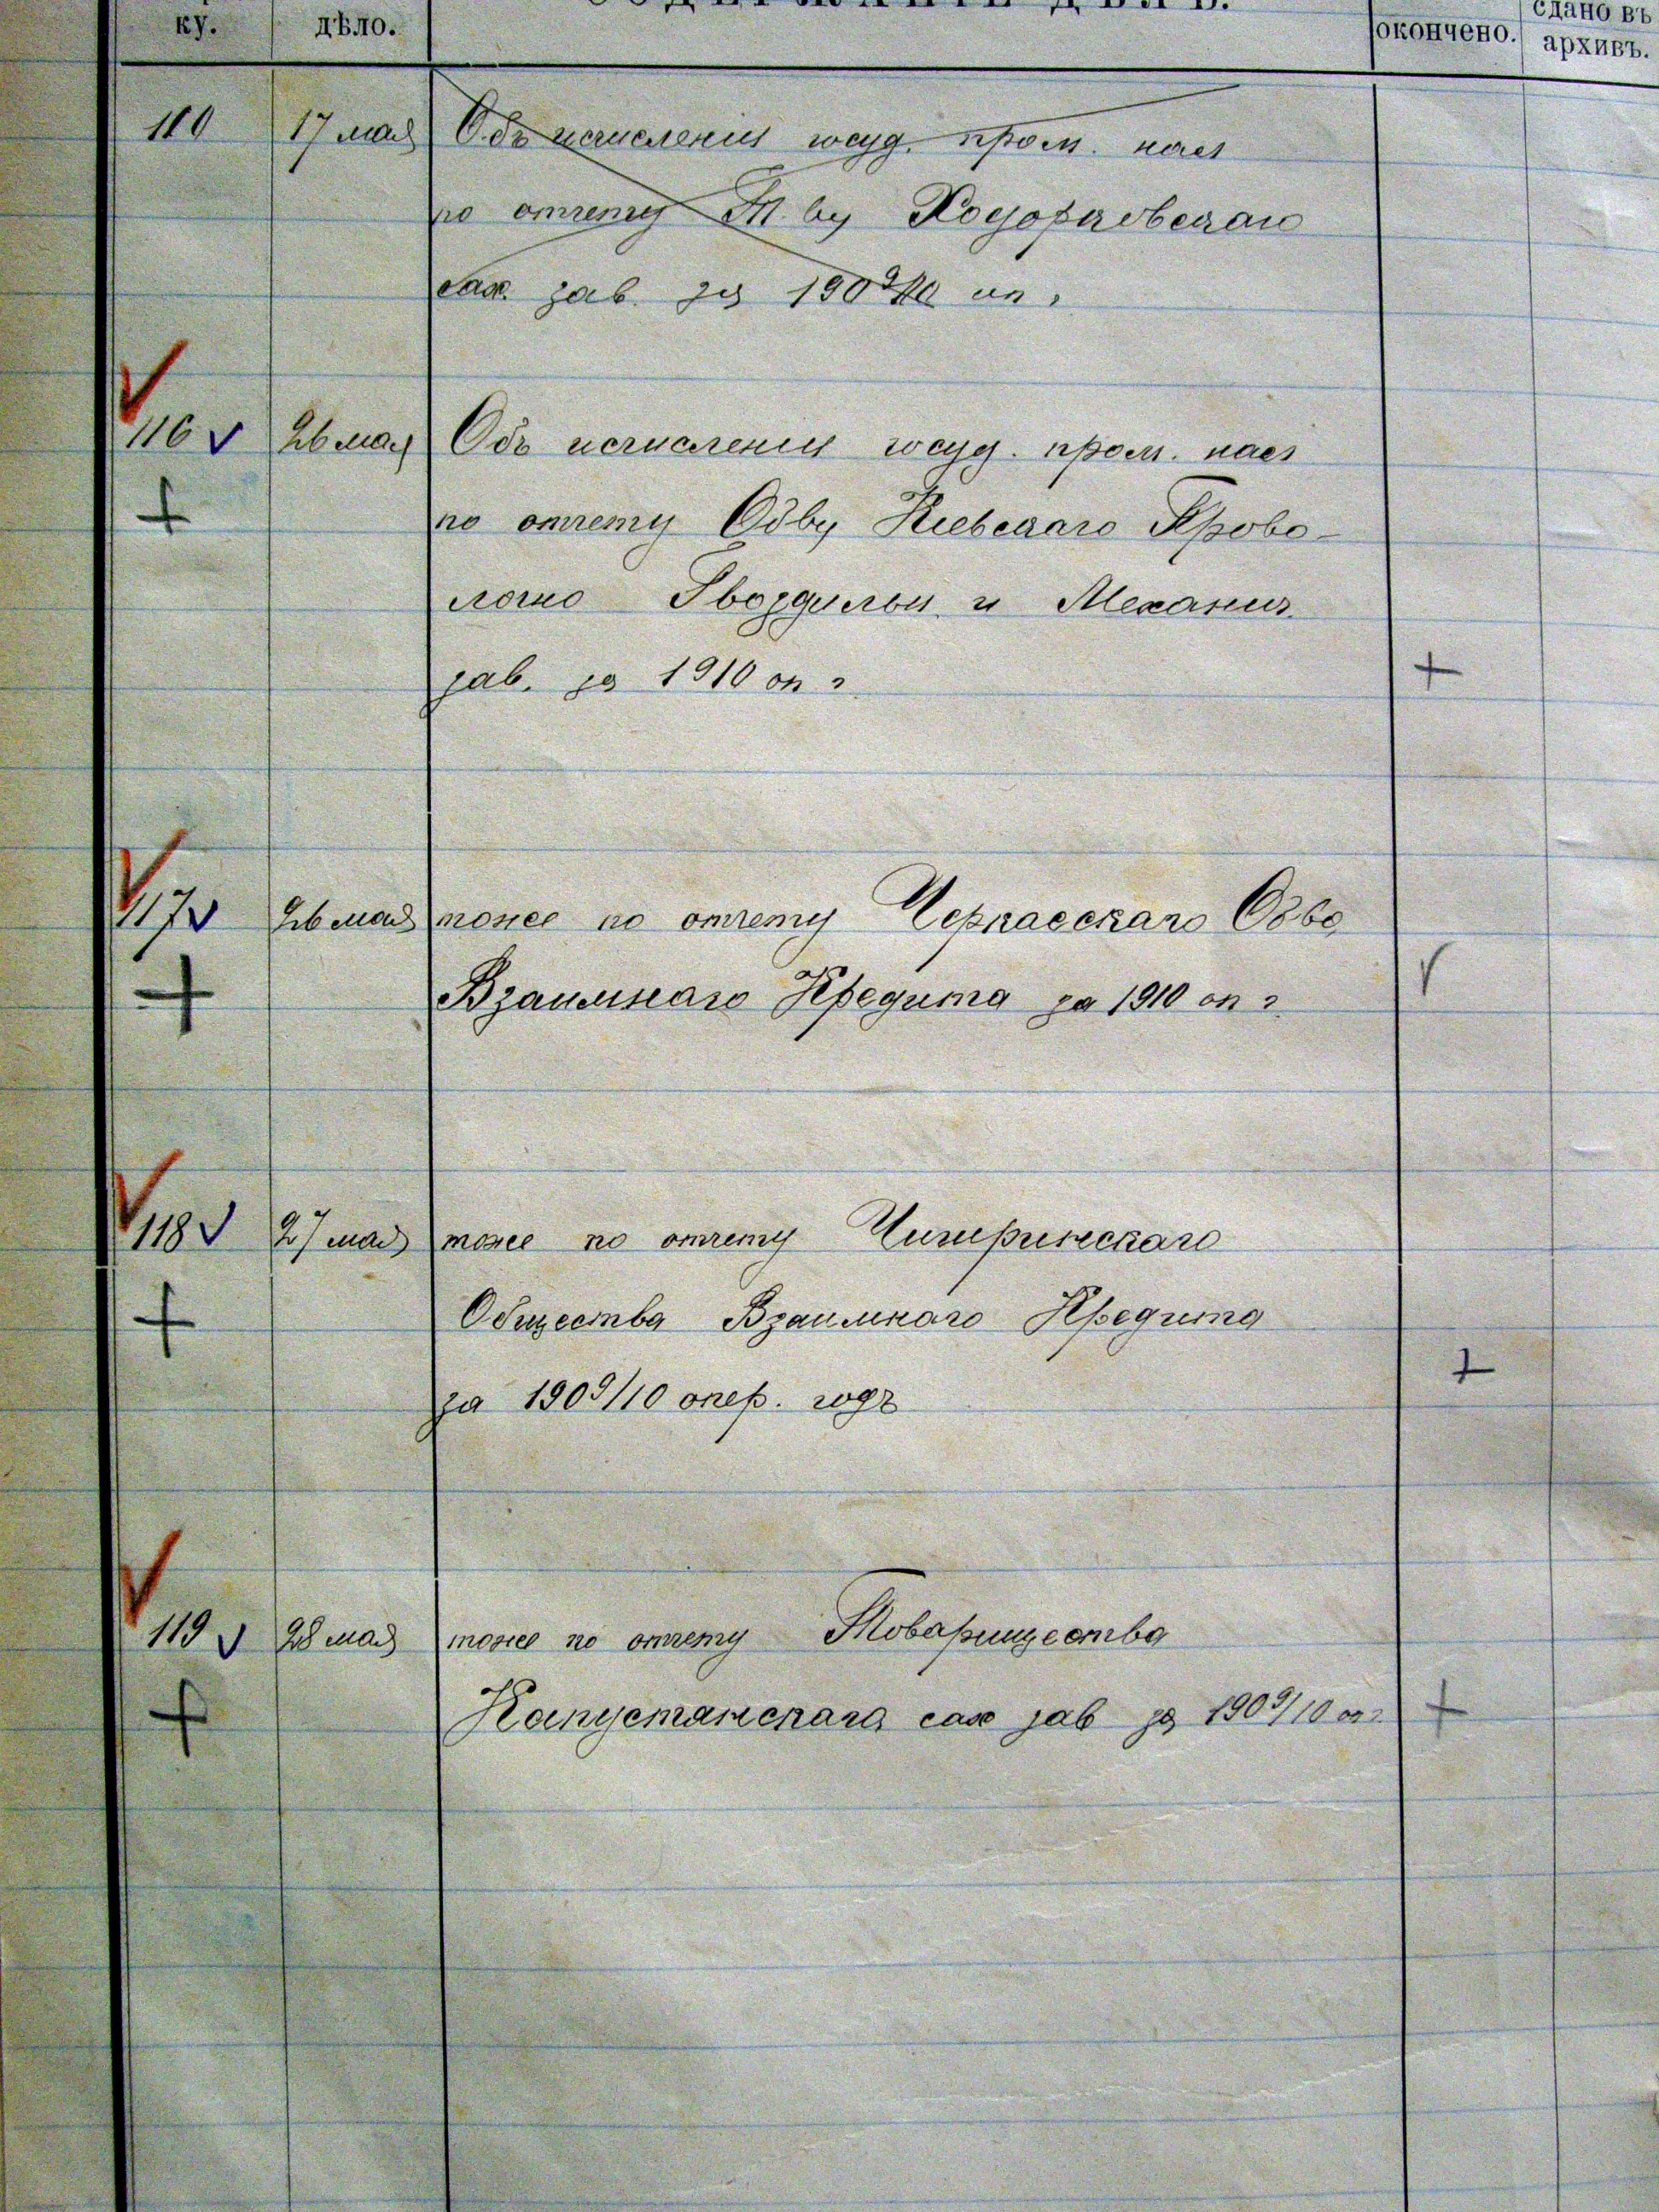 ку. дѣло. СОДЕРЖАНІЕ ДѢЛЪ. окончено. сдано въ архивъ.
110 17 мая Объ исчисленіи госуд. пром. нал
по отчету Т. ву Ходорковскаго
сах. зав. за 1909/10 оп.
116 v 26 мая Объ исчисленіи госуд. пром. нал
по отчету Обву Кіевскаго Прово-
лочно Гвоздильн. и Механич.
зав. за 1910 оп г.
117 v 26 мая тоже по отчету Черкасскаго Обво
Взаимнаго Кредита за 1910 оп г.
118 v 27 мая тоже по отчету Чигиринскаго
Общества Взаимнаго Кредита
за 1909/10 опер. годъ
119 v 28 мая тоже по отчету Товарищества
Капустянскаго сах зав за 1909/10 оп г.